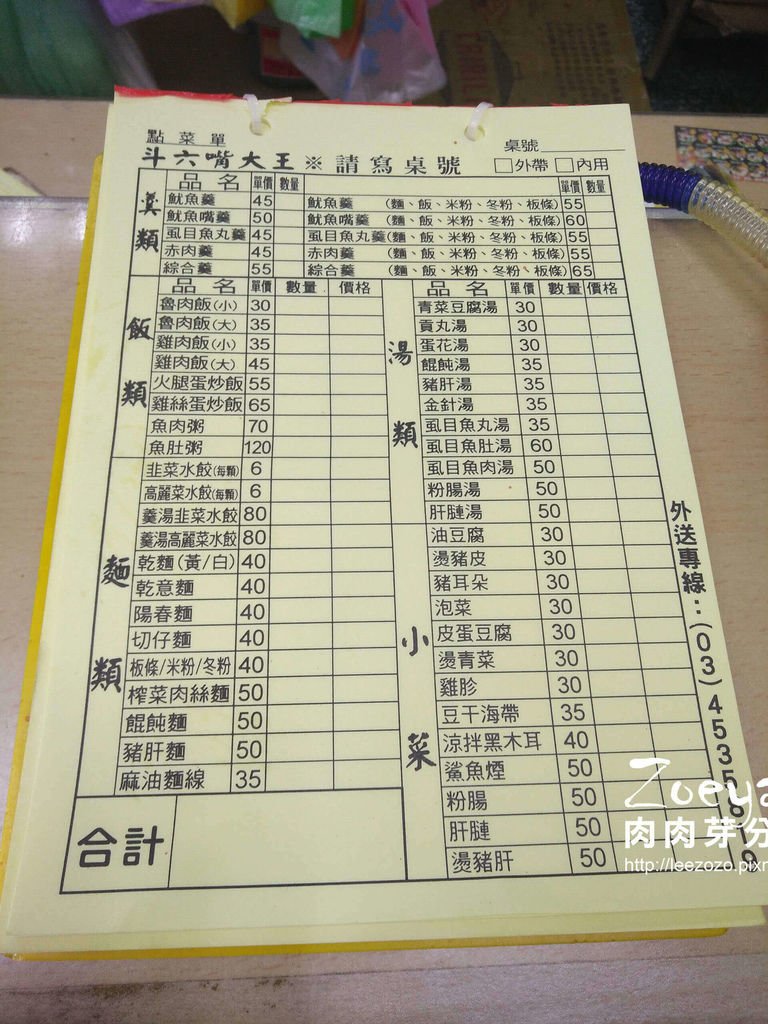 點菜單
桌號
斗六嘴大王※請寫桌號 □外帶 □內用
羹類
品名 單價 數量 單價 數量
魷魚羹 45 魷魚羹 (麵、飯、米粉、冬粉、板條) 55
魷魚嘴羹 50 魷魚嘴羹 (麵、飯、米粉、冬粉、板條) 60
虱目魚丸羹 45 虱目魚丸羹(麵、飯、米粉、冬粉、板條) 55
赤肉羹 45 赤肉羹 (麵、飯、米粉、冬粉、板條) 55
綜合羹 55 綜合羹 (麵、飯、米粉、冬粉、板條) 65
飯類
品名 單價 數量 價格
魯肉飯(小) 30
魯肉飯(大) 35
雞肉飯(小) 35
雞肉飯(大) 45
火腿蛋炒飯 55
雞絲蛋炒飯 65
魚肉粥 70
魚肚粥 120
麵類
韭菜水餃(每顆) 6
高麗菜水餃(每顆) 6
羹湯韭菜水餃 80
羹湯高麗菜水餃 80
乾麵(黃/白) 40
乾意麵 40
陽春麵 40
切仔麵 40
板條/米粉/冬粉 40
榨菜肉絲麵 50
餛飩麵 50
豬肝麵 50
麻油麵線 35
合計
湯類
品名 單價 數量 價格
青菜豆腐湯 30
貢丸湯 30
蛋花湯 30
餛飩湯 35
豬肝湯 35
金針湯 35
虱目魚丸湯 35
虱目魚肚湯 60
虱目魚肉湯 50
粉腸湯 50
肝腱湯 50
小菜
油豆腐 30
燙豬皮 30
豬耳朵 30
泡菜 30
皮蛋豆腐 30
燙青菜 30
雞胗 30
豆干海帶 35
涼拌黑木耳 40
鯊魚煙 50
粉腸 50
肝腱 50
燙豬肝 50
外送專線：(03)4535819
Zoeya
肉肉芽分
http://leezozo.pixn